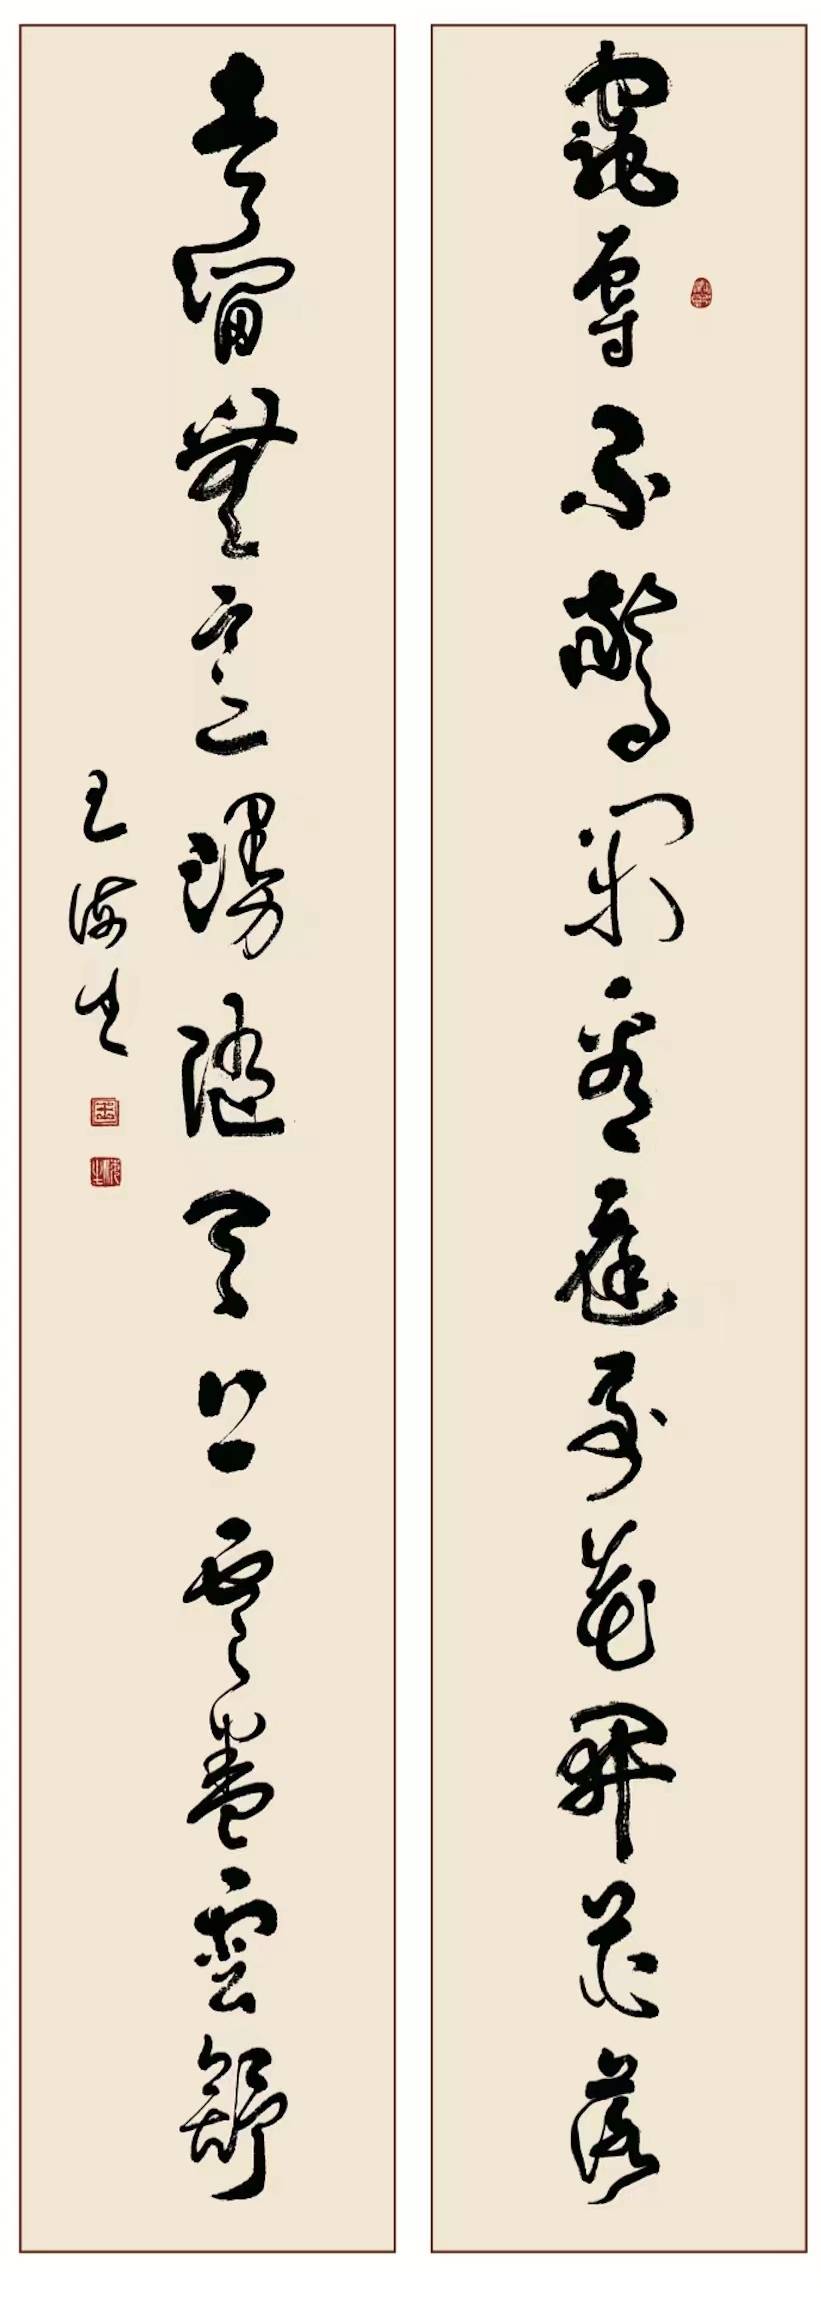 寵辱不驚閑看庭前花開花落
去留無意漫隨天外雲卷雲舒
王海生